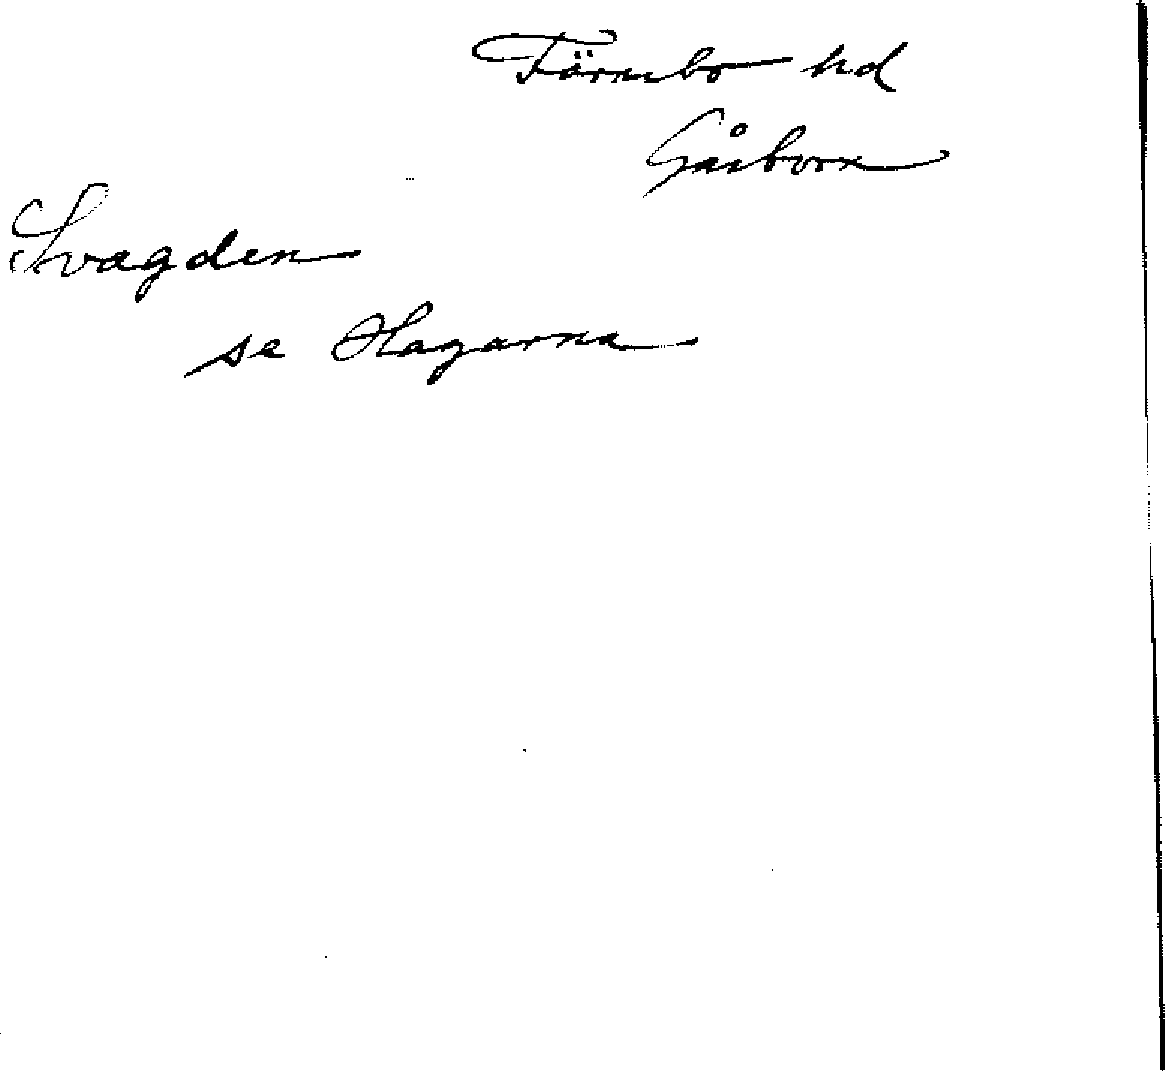 Färnebo hd
Gåsborn
Svagden
se Hagarna